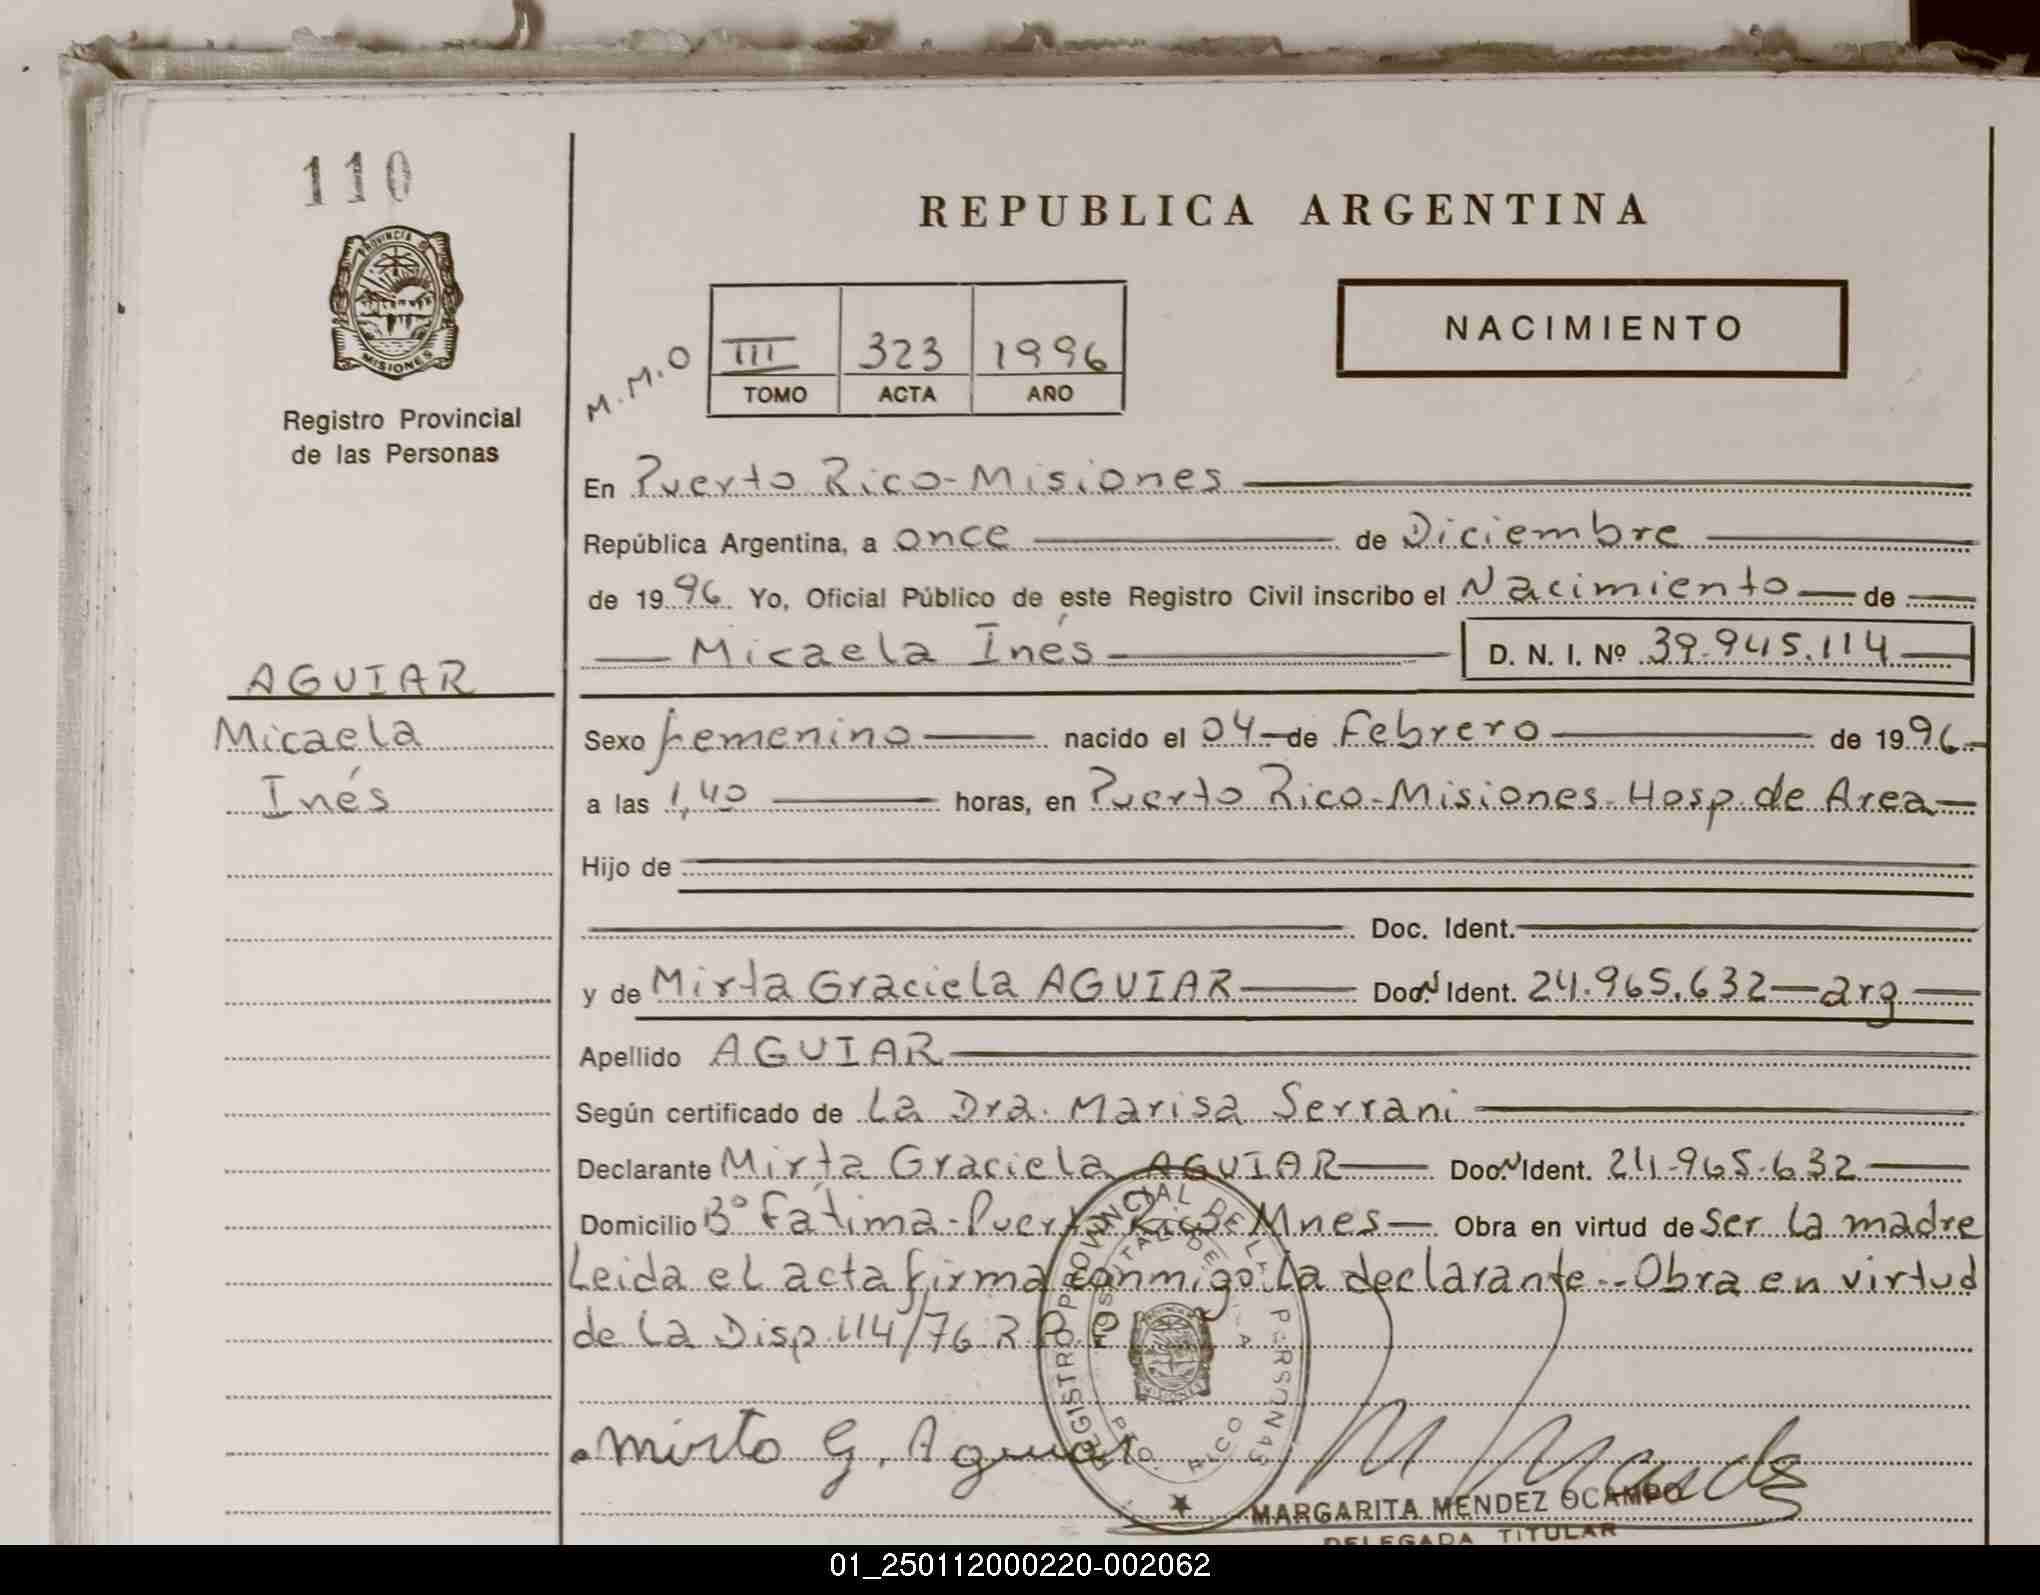 110
REPUBLICA ARGENTINA
PROVINCIA D
MISIONES
Registro Provincial
de las Personas
M.M.O
III 323 1996
TOMO ACTA AÑO
NACIMIENTO
En Puerto Rico-Misiones
República Argentina, a once de Diciembre
de 1996 Yo, Oficial Público de este Registro Civil inscribo el Nacimiento de
Micaela Inés D. N. I. Nº 39.945.114
AGUIAR
Micaela
Inés
Sexo femenino nacido el 04 de Febrero de 1996
a las 1,40 horas, en Puerto Rico-Misiones-Hosp. de Area
Hijo de
Doc. Ident.
y de Mirta Graciela AGUIAR Doc. Ident. 24.965.632 arg
Apellido AGUIAR
Según certificado de La Dra. Marisa Serrani
Declarante Mirta Graciela AGUIAR Doc. Ident. 24.965.632
Domicilio Bº Fátima-Puerto Rico Mnes Obra en virtud de ser la madre
Leida el acta firma conmigo la declarante.-Obra en virtud
de la Disp. 114/76 R.P.P.
REGISTRO PROVINCIAL DE LAS PERSONAS
HOSPITAL DE
PTO. RICO
Mirta G. Aguiar
M Mendez
MARGARITA MENDEZ OCAMPO
DELEGADA TITULAR
01_250112000220-002062